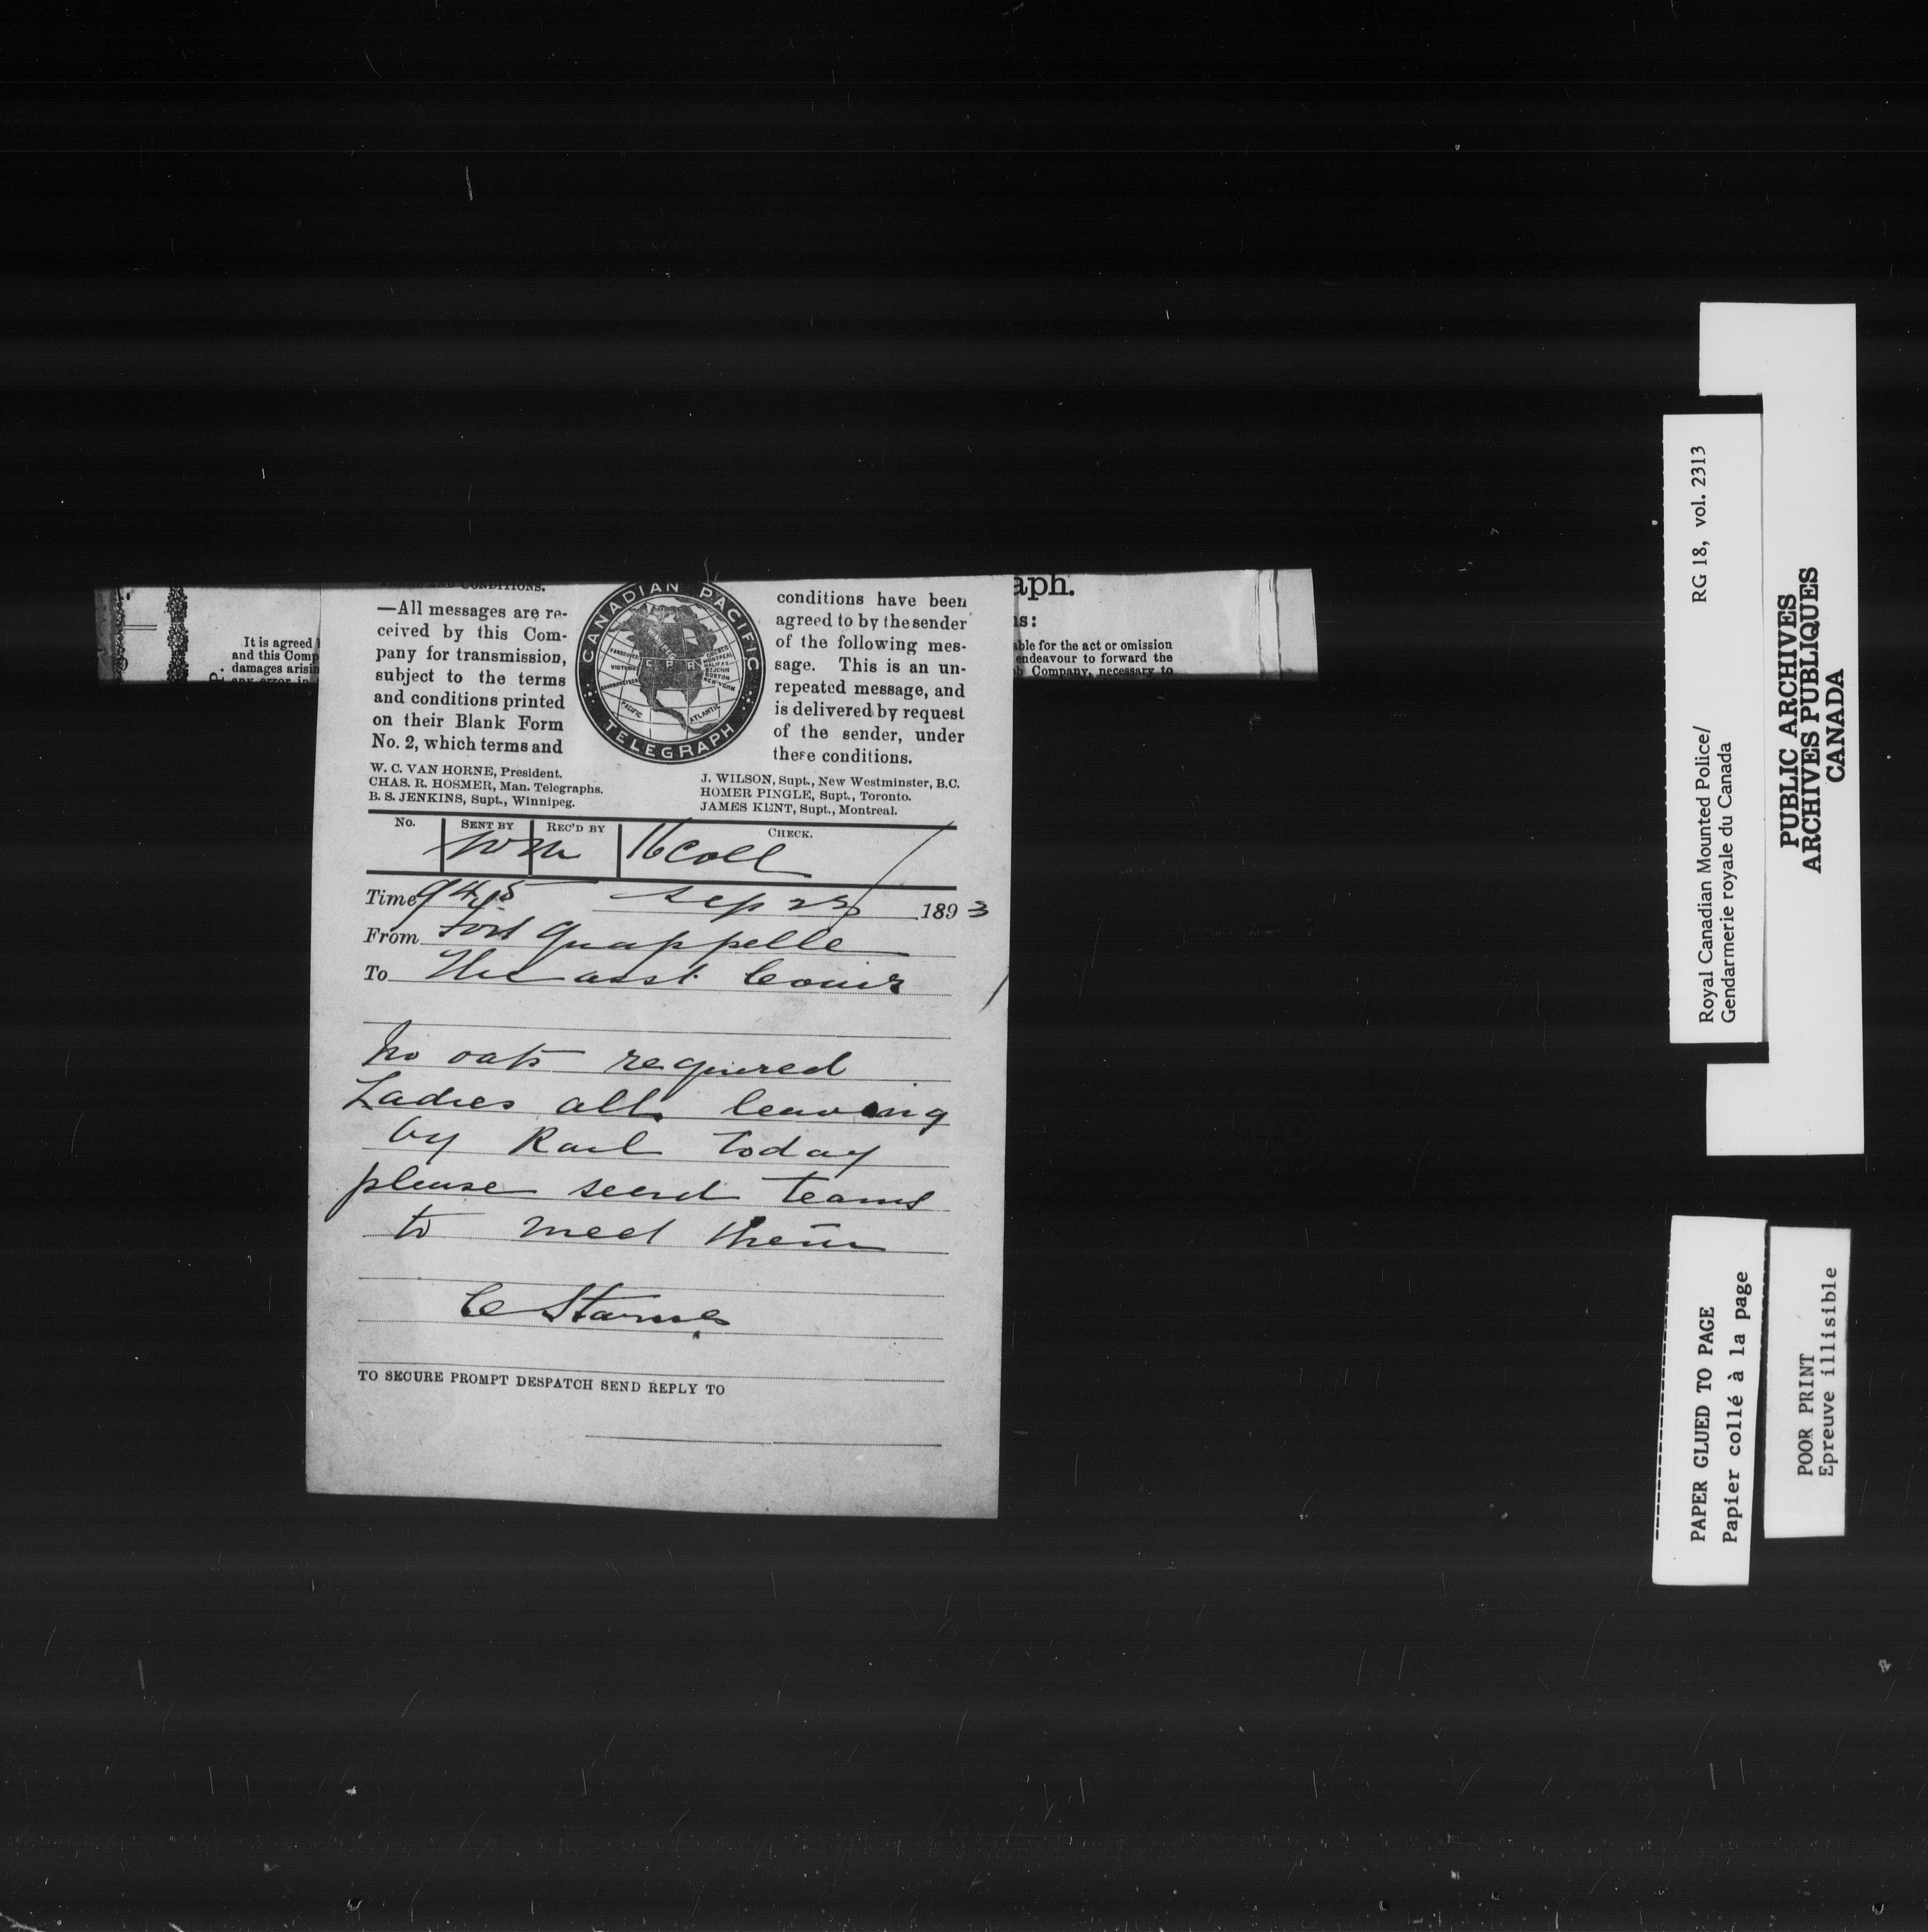 TERMS AND CONDITIONS.
—All messages are re-
ceived by this Com-
pany for transmission,
subject to the terms
and conditions printed
on their Blank Form
No. 2, which terms and
CANADIAN PACIFIC
TELEGRAPH
C P R
PACIFIC
ATLANTIC
conditions have been
agreed to by the sender
of the following mes-
sage. This is an un-
repeated message, and
is delivered by request
of the sender, under
these conditions.
W. C. VAN HORNE, President.
CHAS. R. HOSMER, Man. Telegraphs.
B. S. JENKINS, Supt., Winnipeg.
J. WILSON, Supt., New Westminster, B.C.
HOMER PINGLE, Supt., Toronto.
JAMES KENT, Supt., Montreal.
No. SENT BY REC'D BY CHECK.
16 Coll
Time 945 Sep 23 1893
From Fort Quappelle
To The asst Comr
No oats required
Ladies all leaving
by Rail today
please send teams
to meet them
C Starnes
TO SECURE PROMPT DESPATCH SEND REPLY TO
It is agreed
and this Comp
damages arisin
any error in
aph.
ns:
able for the act or omission
endeavour to forward the
h Company, necessary to
Royal Canadian Mounted Police/ RG 18, vol. 2313
Gendarmerie royale du Canada
PUBLIC ARCHIVES
ARCHIVES PUBLIQUES
CANADA
PAPER GLUED TO PAGE
Papier collé à la page
POOR PRINT
Epreuve illisible